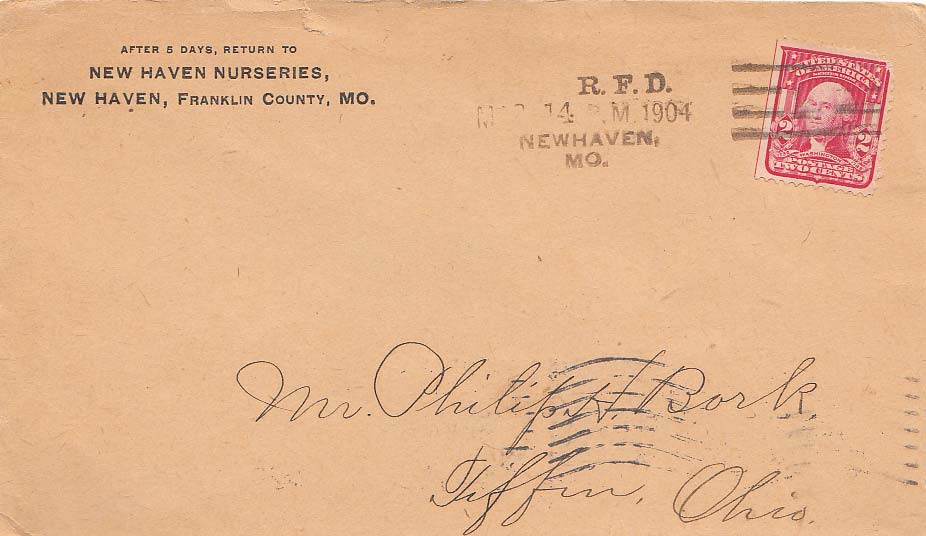 AFTER 5 DAYS, RETURN TO
NEW HAVEN NURSERIES,
NEW HAVEN, FRANKLIN COUNTY, MO.
R. F. D.
14 M. 1904
NEWHAVEN,
MO.
UNITED STATES
OF AMERICA
2 2
WASHINGTON
POSTAGE
TWO CENTS
Mr. Philip H. Bork.
Tiffin, Ohio.